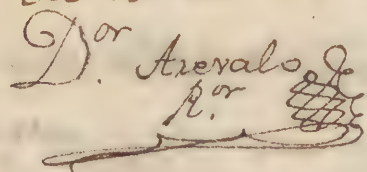 D.or Arevalo
R.or